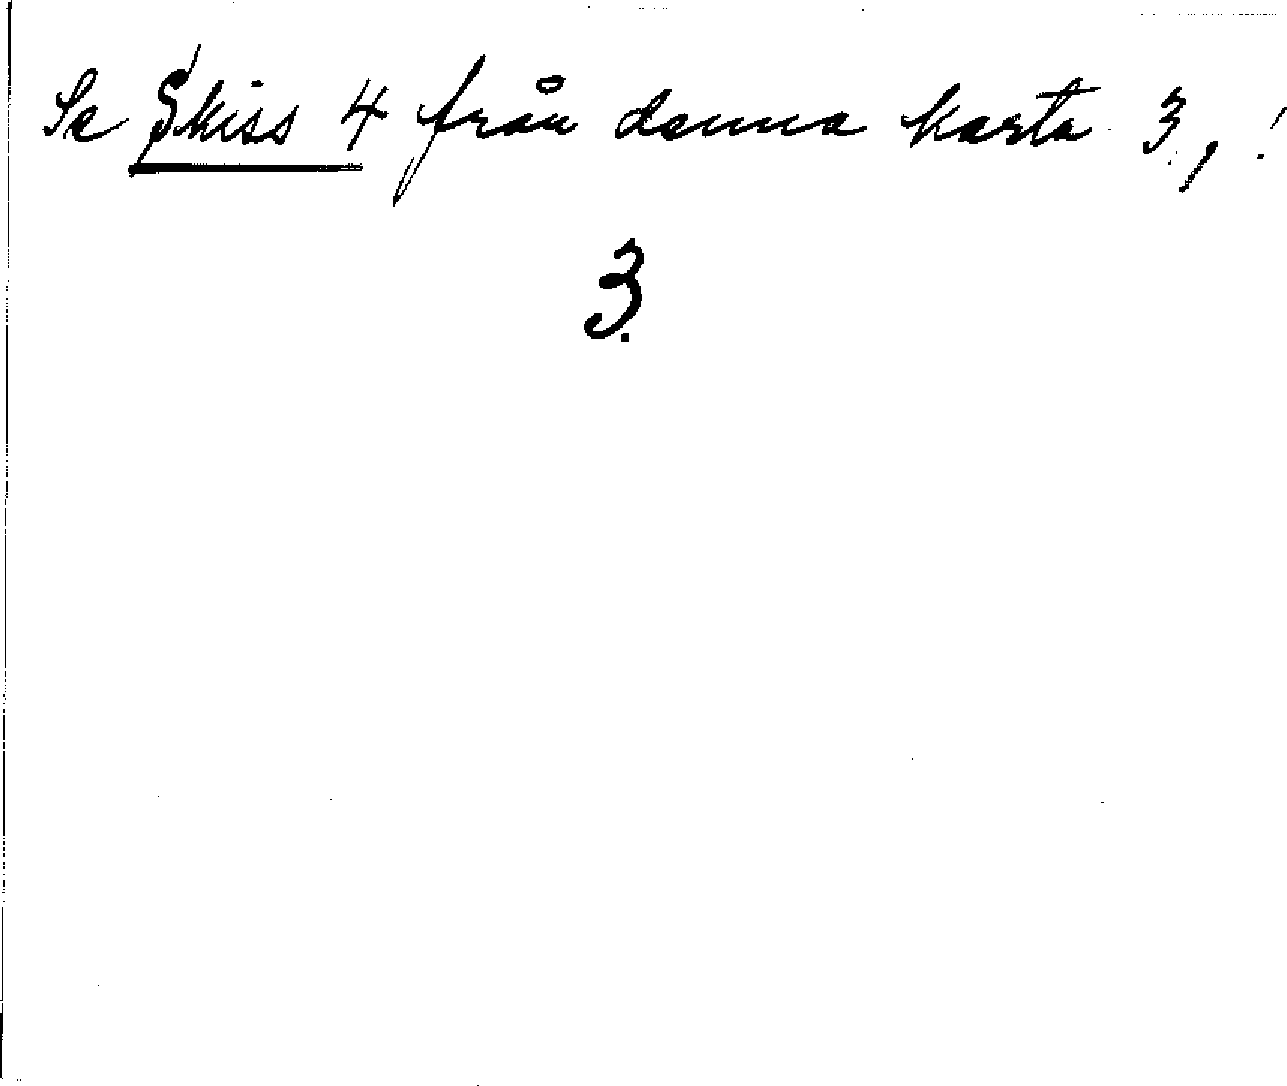 Se Skiss 4 från denna karta 3., !
3.